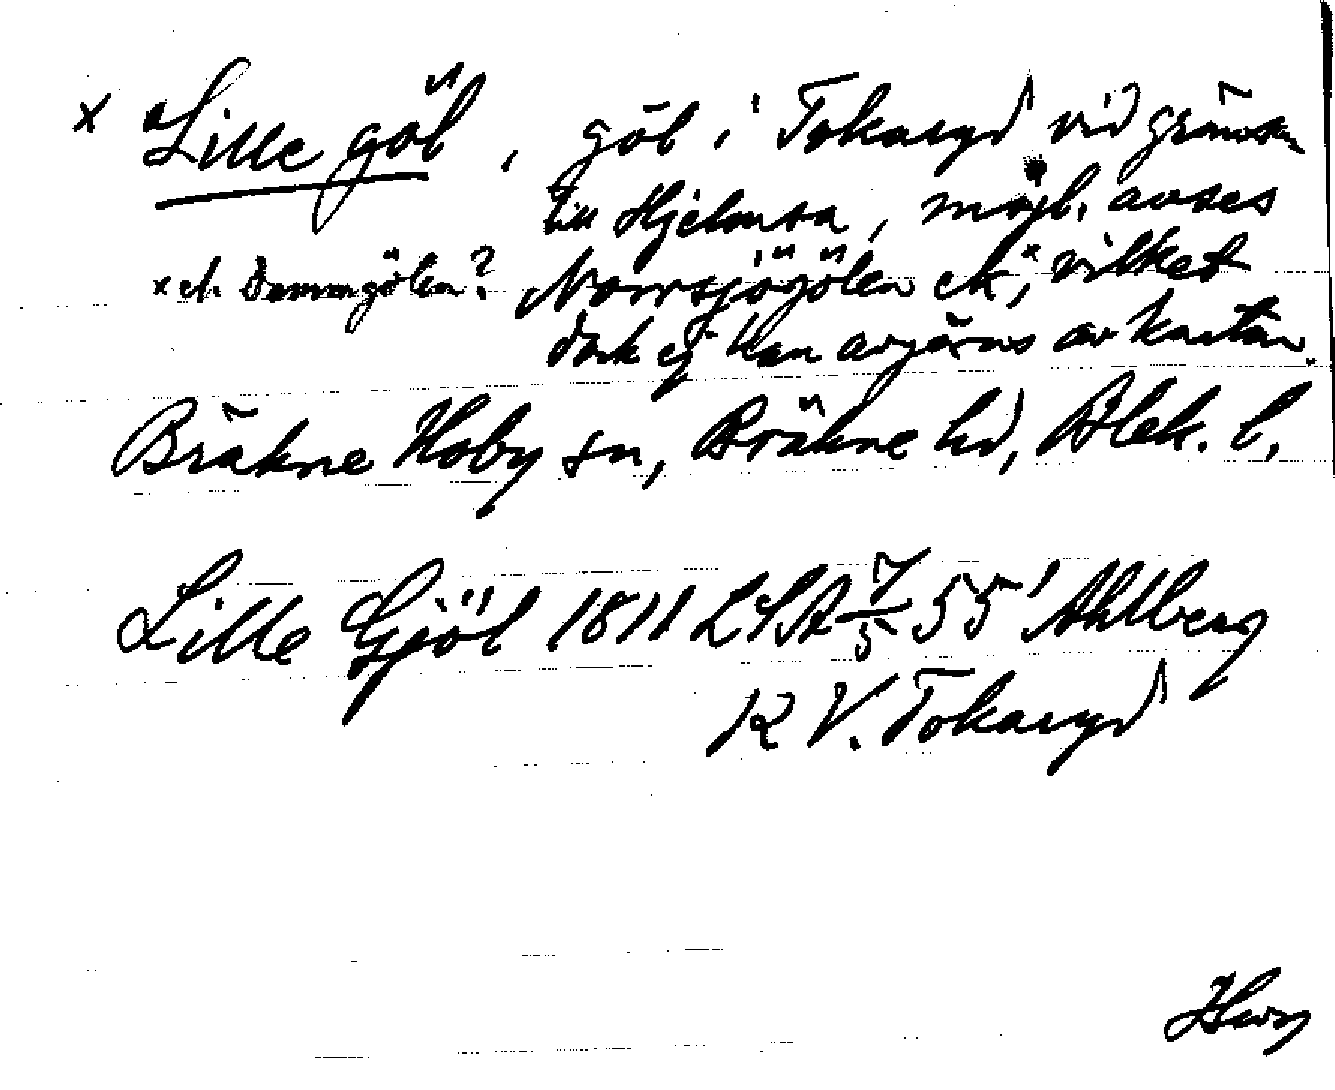 x Lille göl, göl i Tokaryd vid gränsen
till Hjelmsa, möjl. avses
Norrsjögölen ek x, vilket
x ek Dammgölen?
dock ej kan avgöras av kartan.
Bräkne Hoby sn, Bräkne hd, Blek. l.
Lille Gjöl 1811 LSA 7/5 55 Ahlberg
K V. Tokaryd